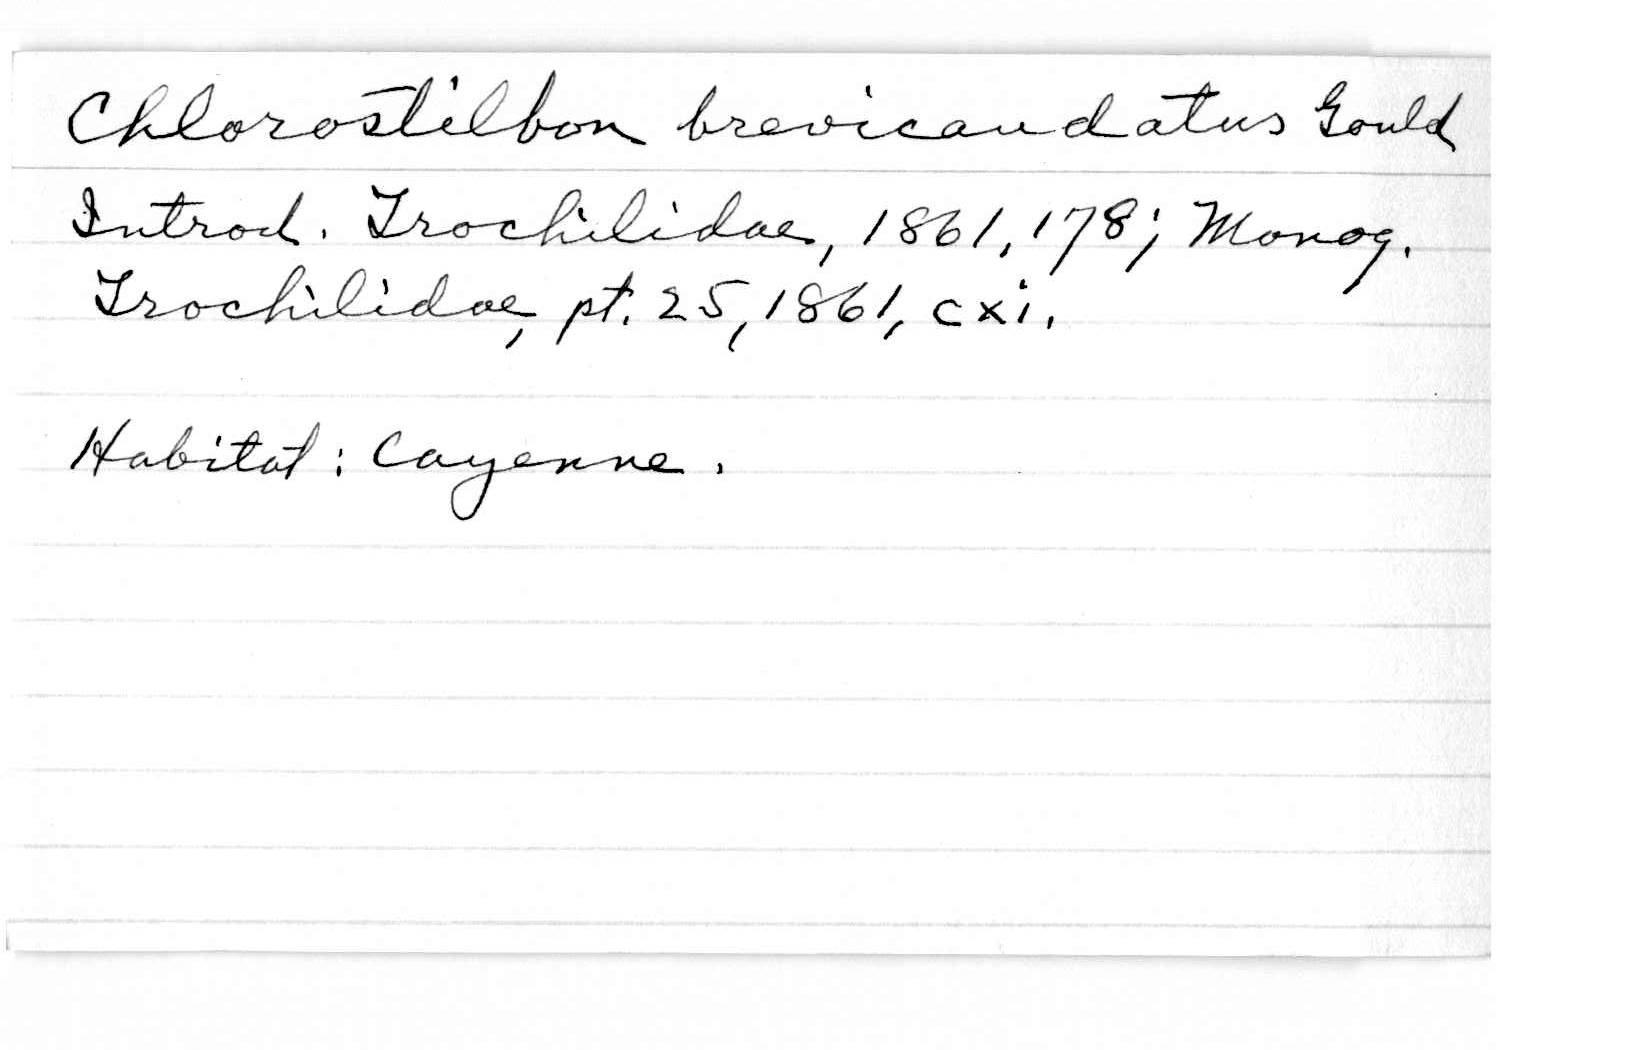 Chlorostilbon brevicaudatus Gould
Introd. Trochilidae, 1861, 178; Monog.
Trochilidae, pt. 25, 1861, cxi.
Habitat: Cayenne.